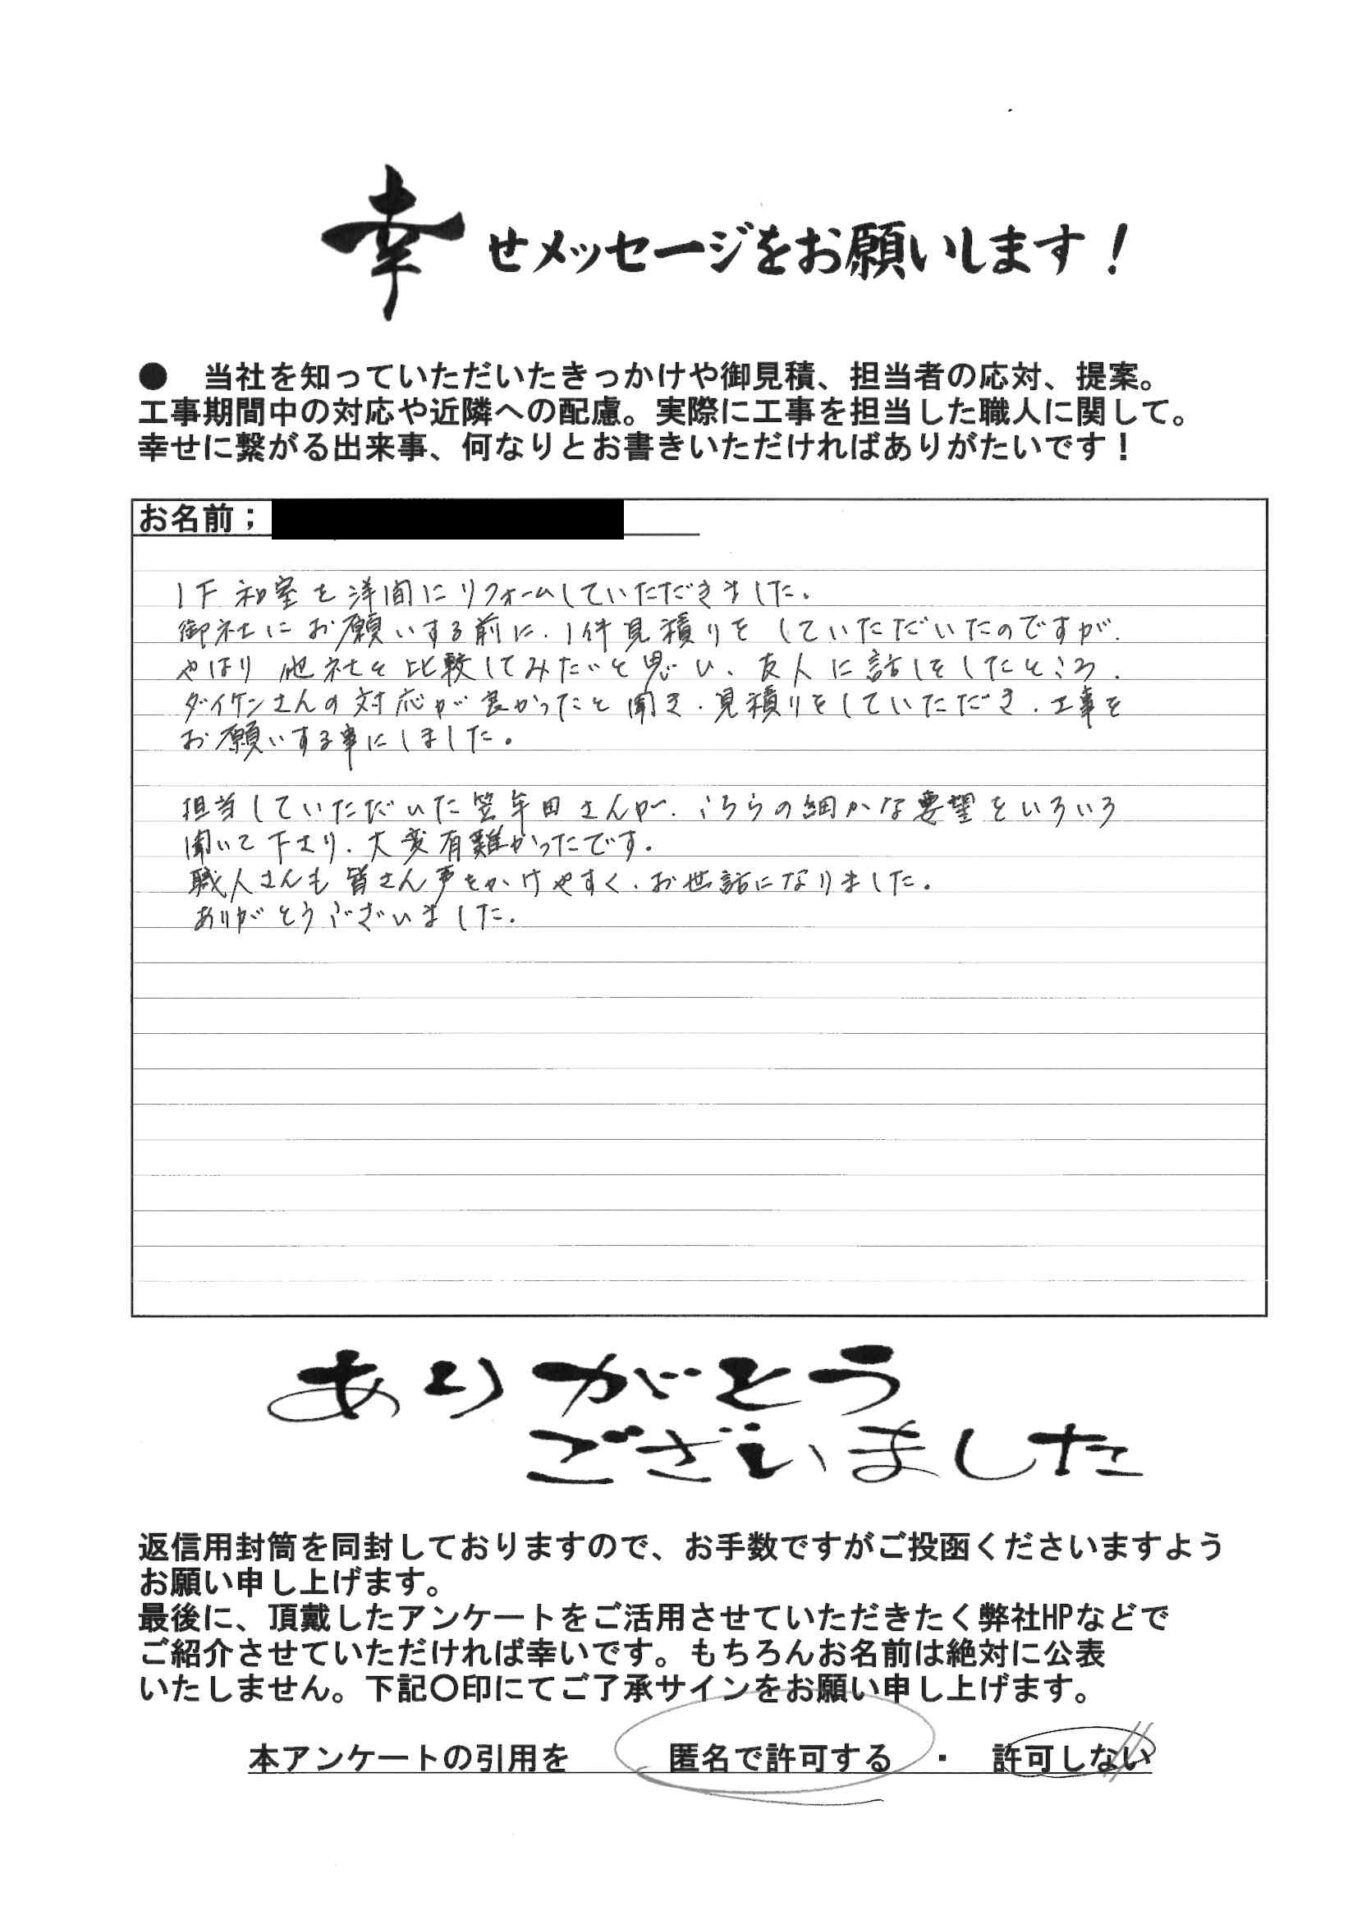 幸せメッセージをお願いします！
● 当社を知っていただいたきっかけや御見積、担当者の応対、提案。
工事期間中の対応や近隣への配慮。実際に工事を担当した職人に関して。
幸せに繋がる出来事、何なりとお書きいただければありがたいです！
お名前；
1F和室を洋間にリフォームしていただきました。
御社にお願いする前に、1件見積りをしていただいたのですが、
やはり他社と比較してみたいと思い、友人に話しをしたところ、
ダイケンさんの対応が良かったと聞き、見積りをしていただき、工事を
お願いする事にしました。
担当していただいた笠牟田さんが、こちらの細かな要望をいろいろ
聞いて下さり、大変有難かったです。
職人さんも皆さん声をかけやすく、お世話になりました。
ありがとうございました。
ありがとう
ございました
返信用封筒を同封しておりますので、お手数ですがご投函くださいますよう
お願い申し上げます。
最後に、頂戴したアンケートをご活用させていただきたく弊社HPなどで
ご紹介させていただければ幸いです。もちろんお名前は絶対に公表
いたしません。下記〇印にてご了承サインをお願い申し上げます。
本アンケートの引用を 匿名で許可する ・ 許可しない